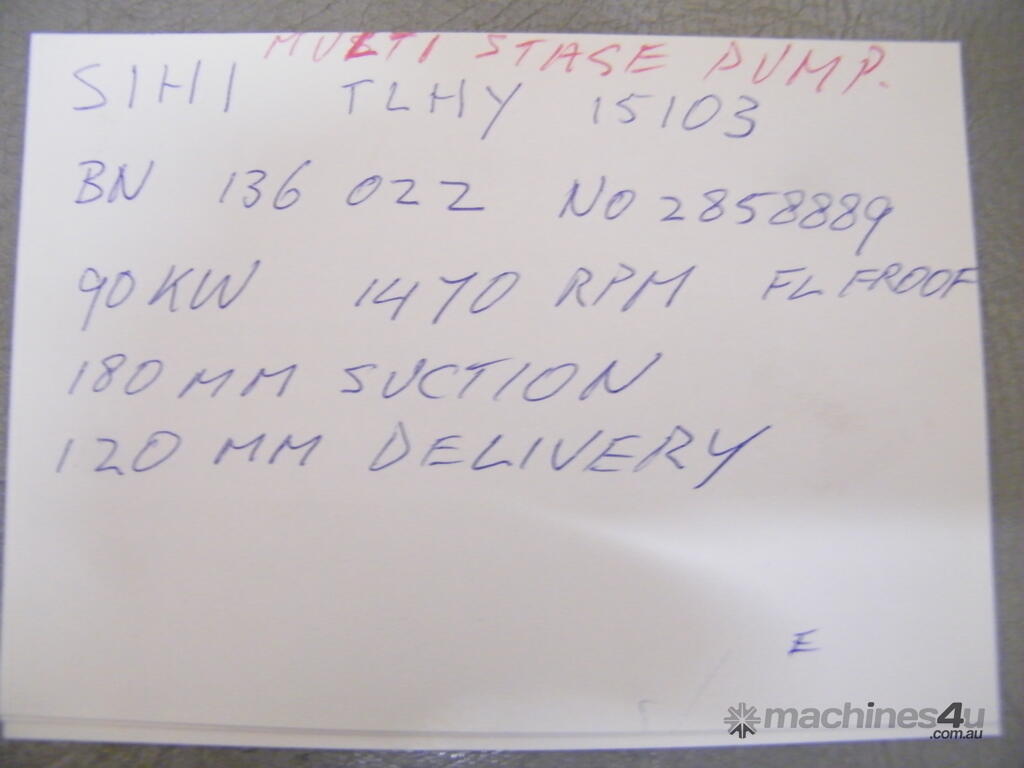 MULTI STAGE PUMP.
SIHI TLHY 15103
BN 136 022 NO 2858889
90 KW 1470 RPM FL FROOF
180 MM SUCTION
120 MM DELIVERY
E
machines4u
.com.au